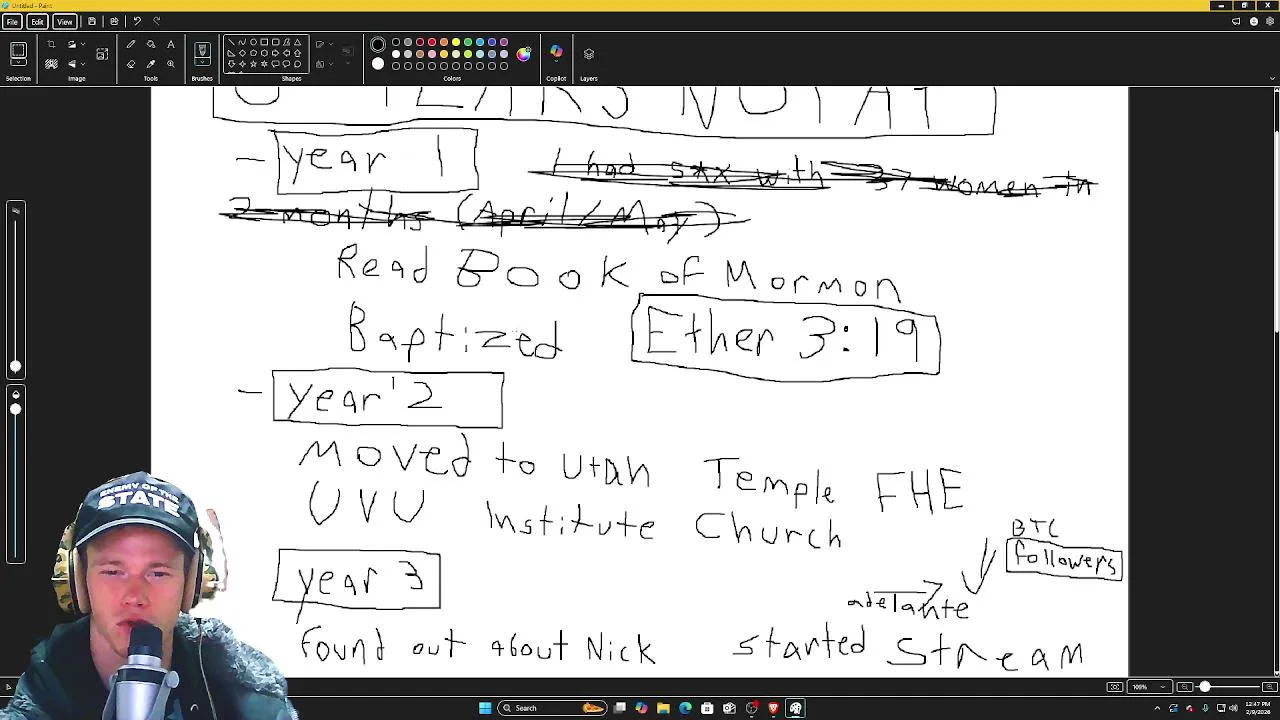 Untitled - Paint
File Edit View
Selection Image Tools Brushes Shapes Colors Copilot Layers
- year 1 I had s*x with 37 women in
2 months (April/May)
Read Book of Mormon
Baptized Ether 3:19
- year 2
Moved to Utah Temple FHE
UVU Institute Church
BTC
year 3 followers
adelante
Found out about Nick started Stream
ENEMY OF THE
STATE
100%
Search
12:47 PM
2/9/2026